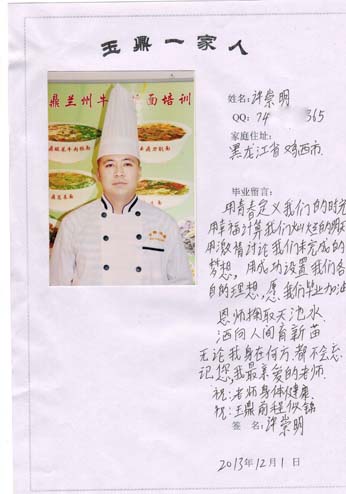 玉鼎一家人
鼎兰州牛 面培训
姓名:许崇明
QQ:74 365
家庭住址:
黑龙江省鸡西市
毕业留言:
用青春定义我们的时光
用幸福计算我们灿烂的
用激情讨论我们未完成的
梦想,用成功设置我们各
自的理想,愿我们毕业加油
恩师掬取天池水
洒向人间育新苗
无论我身在何方.都不会忘
记您,我最亲爱的老师.
祝:老师身体健康
祝:玉鼎前程似锦
签 名:许崇明
2013年12月1日